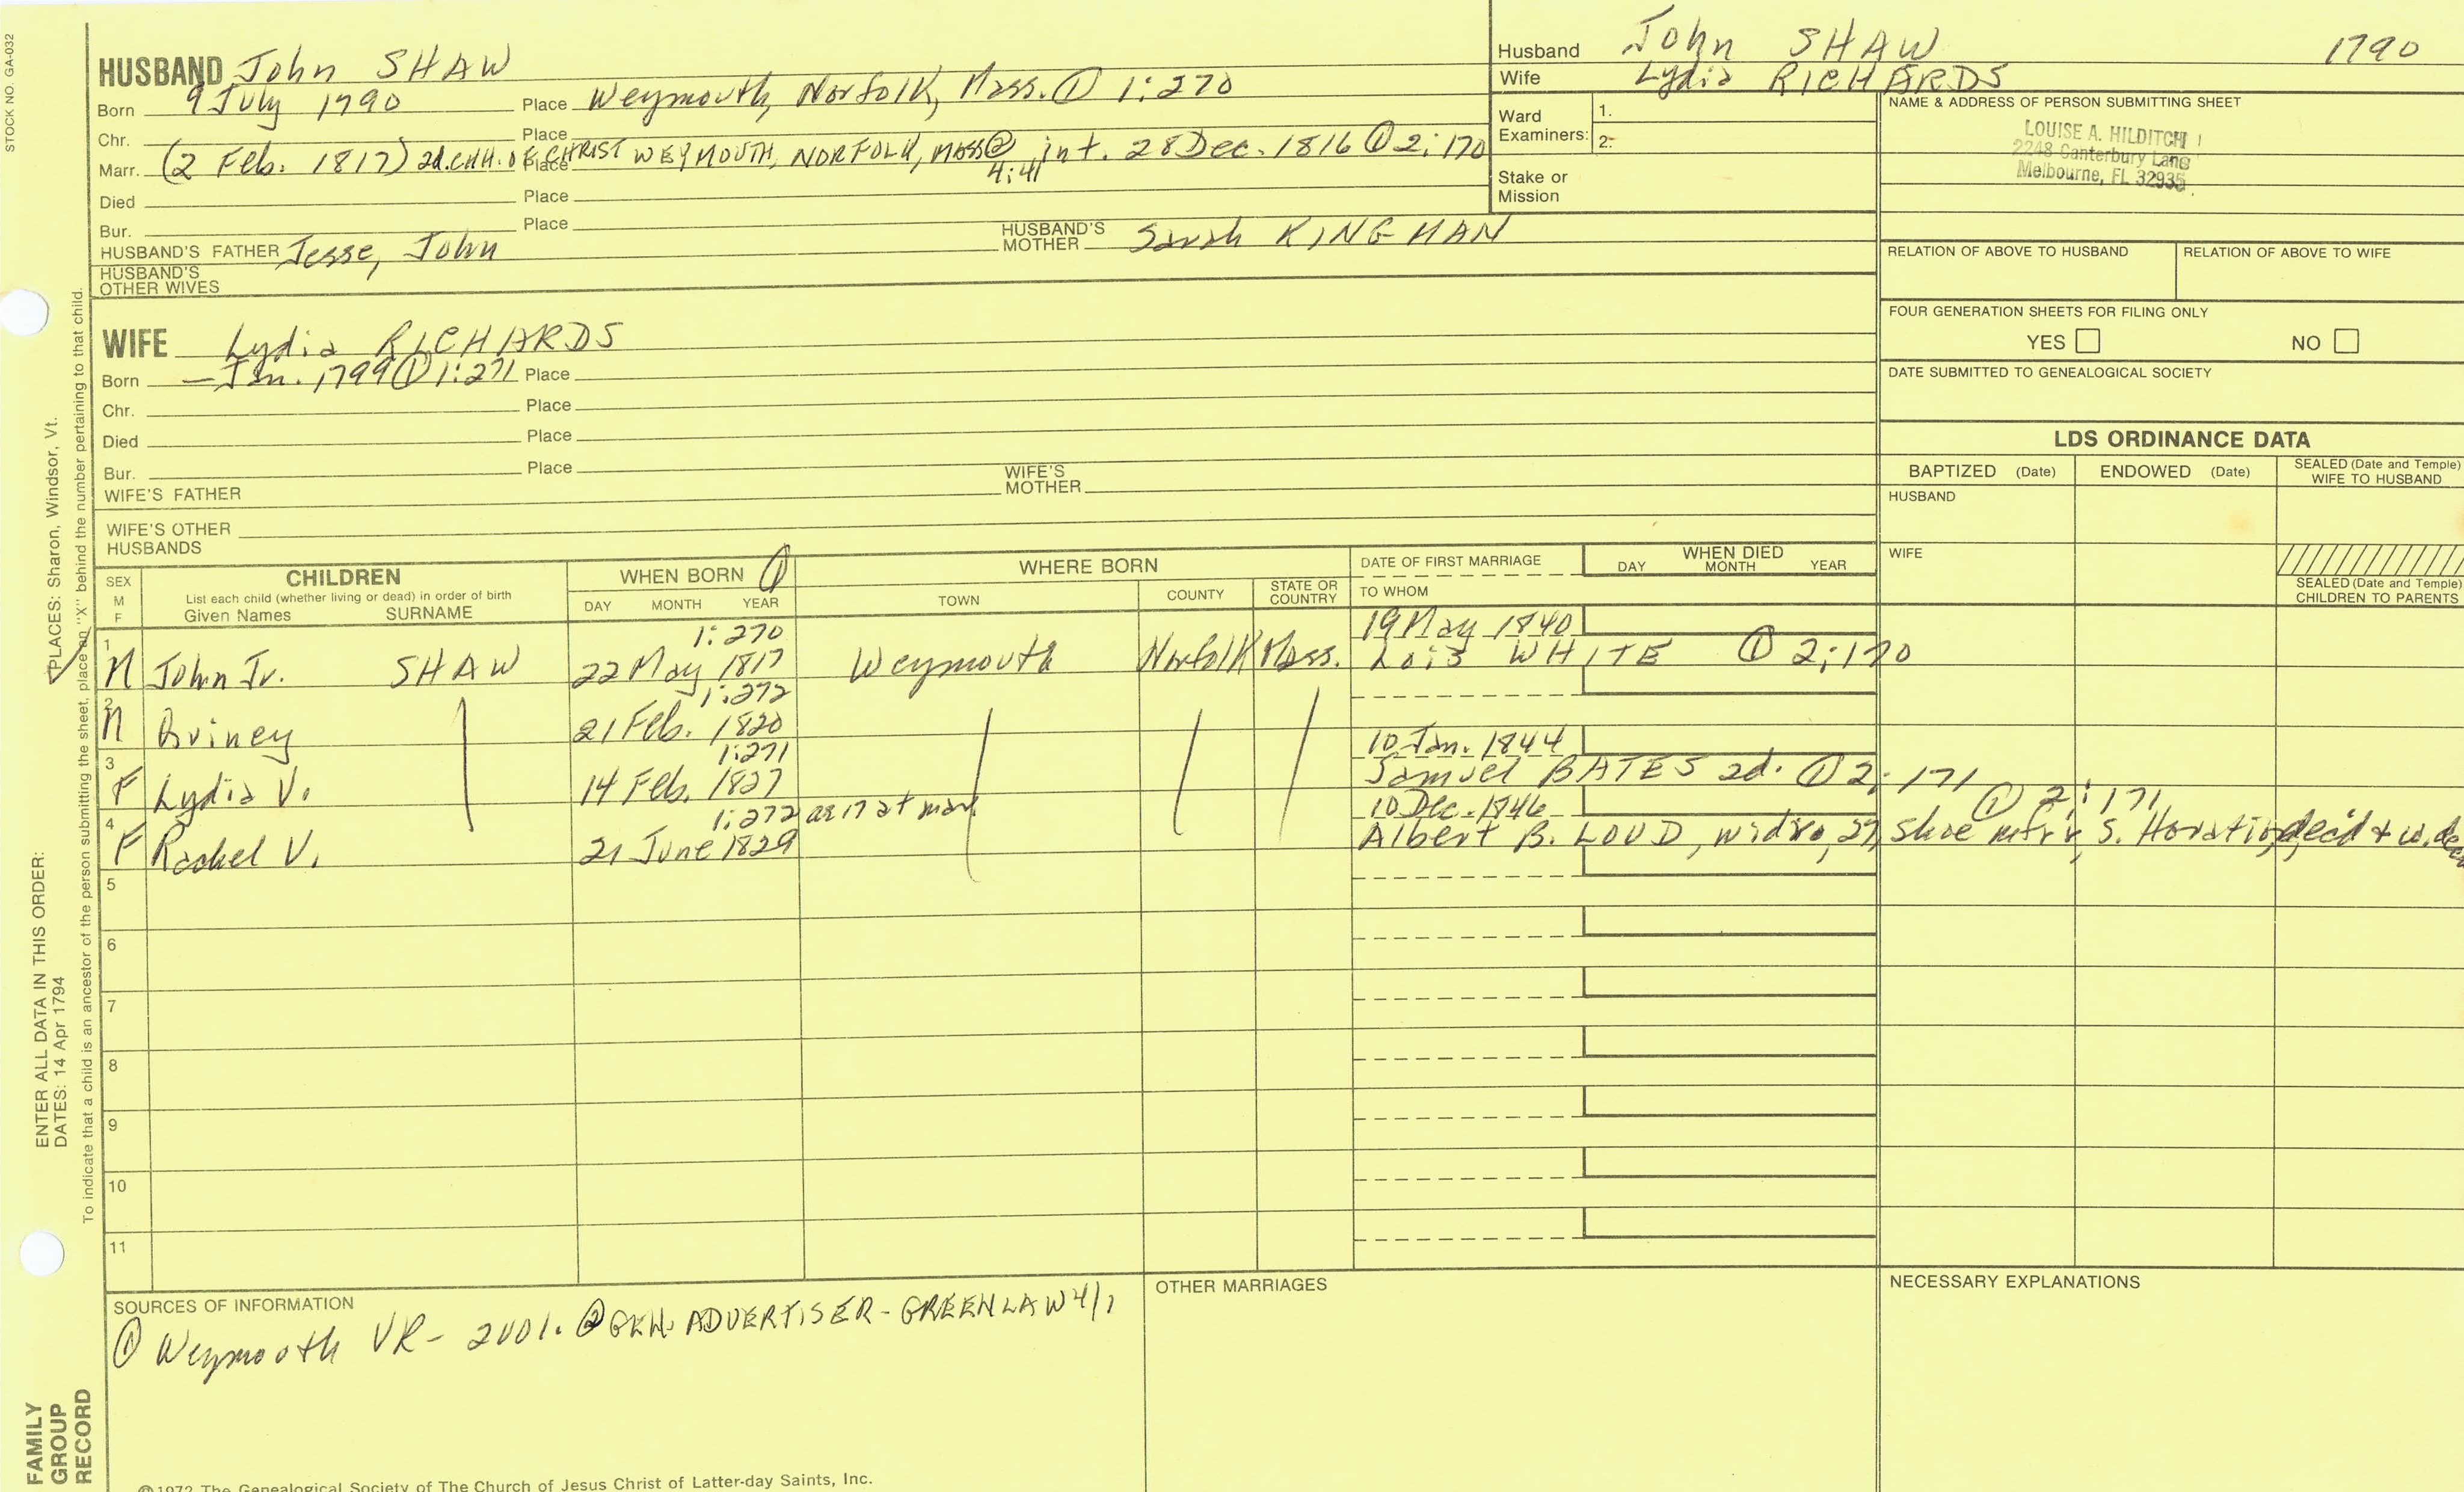 STOCK NO. GA-032
HUSBAND John SHAW
Born 9 July 1790 Place Weymouth, Norfolk, Mass. ① 1:270
Chr. Place
Marr. (2 Feb. 1817) 2d. CHH. OF CHRIST WEYMOUTH, NORFOLK, MASS ② 4:41 int. 28 Dec. 1816 ① 2:170
Place
Died Place
Bur. Place
HUSBAND'S FATHER Jesse, John HUSBAND'S MOTHER Sarah KINGMAN
HUSBAND'S OTHER WIVES
WIFE Lydia RICHARDS
Born — Jan. 1799 ① 1:271 Place
Chr. Place
Died Place
Bur. Place
WIFE'S FATHER WIFE'S MOTHER
WIFE'S OTHER HUSBANDS
Husband John SHAW 1790
Wife Lydia RICHARDS
Ward Examiners: 1.
2.
Stake or Mission
NAME & ADDRESS OF PERSON SUBMITTING SHEET
LOUISE A. HILDITCH
2248 Canterbury Lane
Melbourne, FL 32935
RELATION OF ABOVE TO HUSBAND RELATION OF ABOVE TO WIFE
FOUR GENERATION SHEETS FOR FILING ONLY
YES NO
DATE SUBMITTED TO GENEALOGICAL SOCIETY
LDS ORDINANCE DATA
BAPTIZED (Date) ENDOWED (Date) SEALED (Date and Temple) WIFE TO HUSBAND
HUSBAND
WIFE
SEALED (Date and Temple) CHILDREN TO PARENTS
SEX M F
CHILDREN
List each child (whether living or dead) in order of birth
Given Names SURNAME
WHEN BORN ①
DAY MONTH YEAR
WHERE BORN
TOWN COUNTY STATE OR COUNTRY
DATE OF FIRST MARRIAGE
TO WHOM
WHEN DIED
DAY MONTH YEAR
1:270 19 May 1840
1 M John Jr. SHAW 22 May 1817 Weymouth Norfolk Mass. Lois WHITE ① 2:170
1:272
2 M 21 Feb. 1820
1:271 10 Jan. 1844
3 F Lydia V. 14 Feb. 1827 Samuel BATES 2d. ① 2:171
1:272 ae 17 at mar. 10 Dec. 1846 ① 2:171
4 F Rachel V. 21 June 1829 Albert B. LOUD, widro, 27, shoe mfrr, S. Horatio, dec'd &
5
6
7
8
9
10
11
SOURCES OF INFORMATION
① Weymouth VR - 2 vol. ② GEN. ADVERTISER - GREENLAW 4/1
OTHER MARRIAGES
NECESSARY EXPLANATIONS
©1972 The Genealogical Society of The Church of Jesus Christ of Latter-day Saints, Inc.
FAMILY GROUP RECORD
ENTER ALL DATA IN THIS ORDER:
DATES: 14 Apr 1794
PLACES: Sharon, Windsor, Vt.
To indicate that a child is an ancestor of the person submitting the sheet, place an "X" behind the number pertaining to that child.